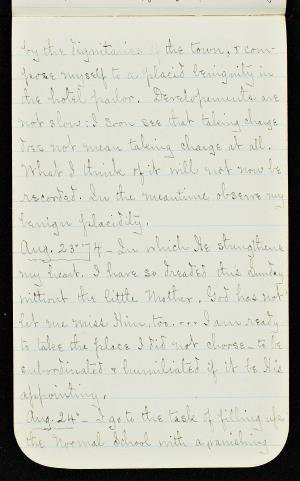 by the dignitaries of the town, & com-
pose myself to a placid benignity in
the hotel parlor. Developements are
not slow: I soon see that taking charge
does not mean taking charge at all.
What I think of it will not now be
recorded. In the meantime observe my
benign placidity.
Aug. 23d 74 - In which He strengthens
my heart. I have so dreaded this Sunday
without the little Mother. God has not
let me miss Him, too.... I am ready
to take the place I did not choose - to be
subordinated & humiliated if it be His
appointing.
Aug. 24th - I go to the task of filling up
the Normal School with a vanishing